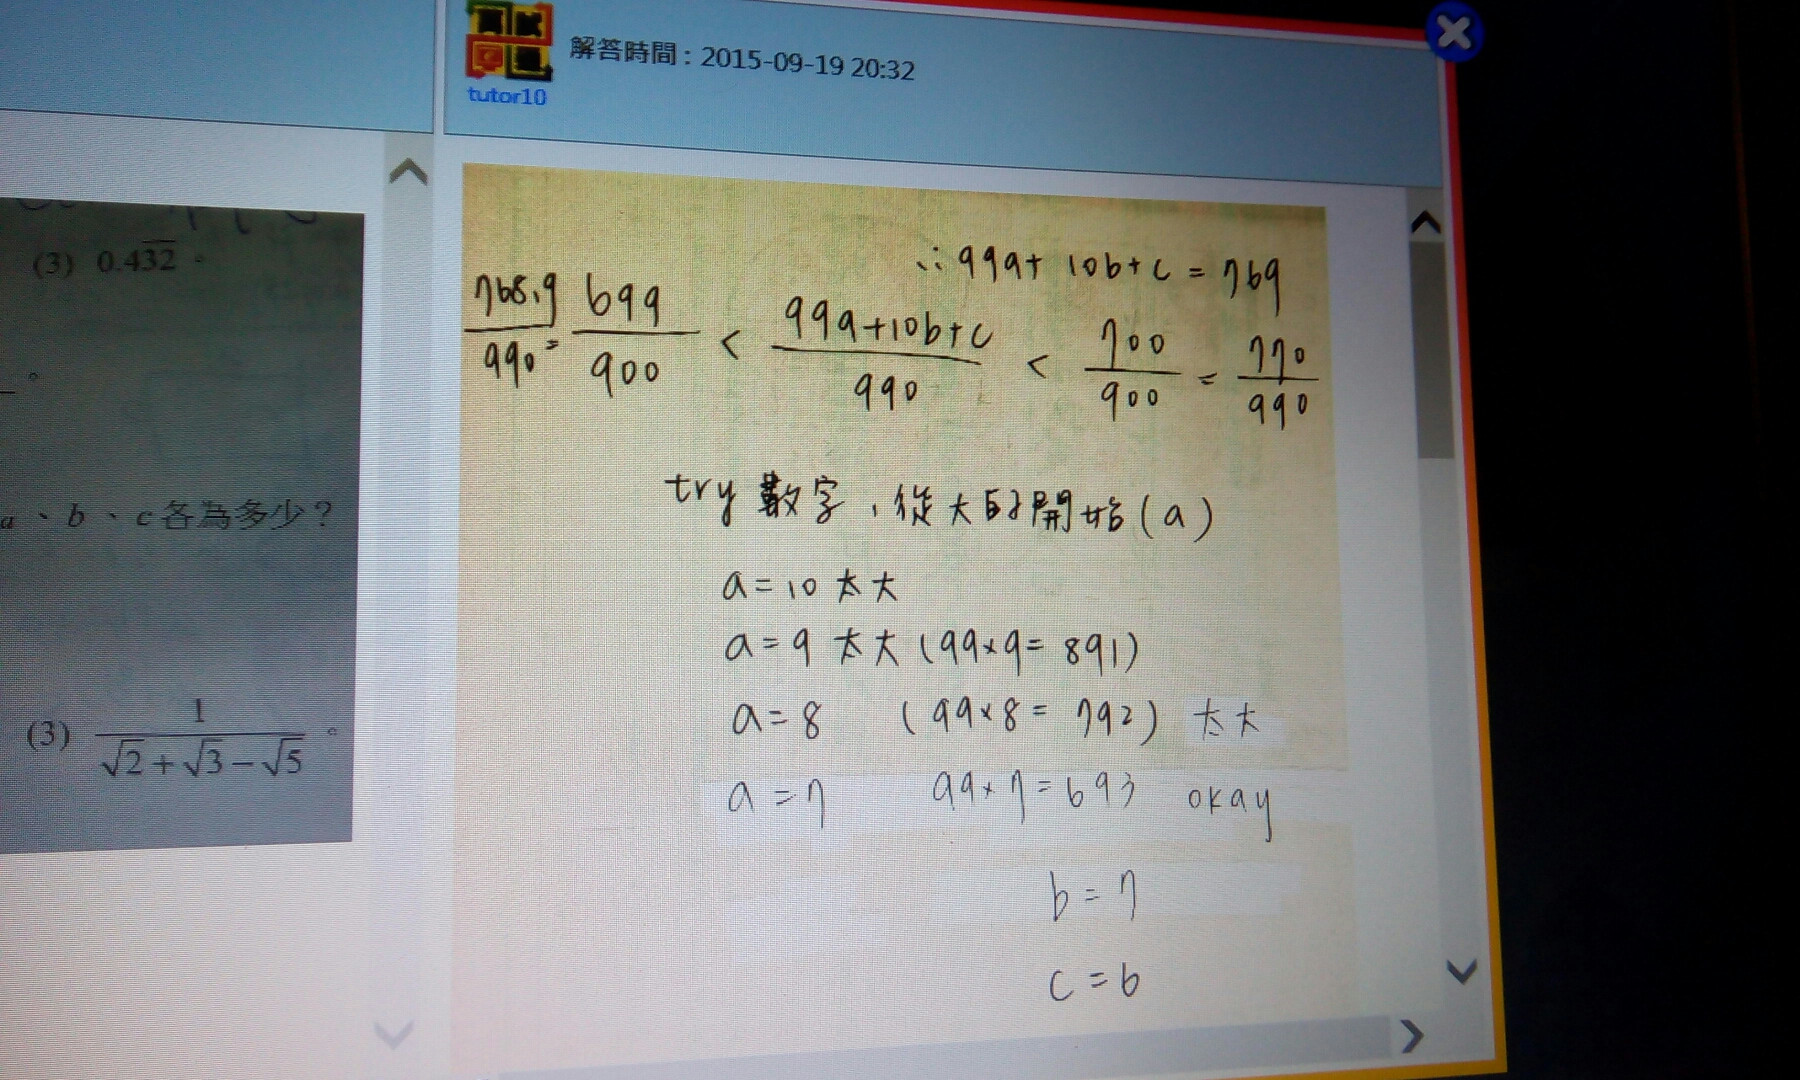 解答時間：2015-09-19 20:32
tutor10
(3) 0.4\overline{32}。
a、b、c各為多少？
(3) \frac{1}{\sqrt{2}+\sqrt{3}-\sqrt{5}}。
∴ 99a+10b+c = 769
\frac{768.9}{990} = \frac{699}{900} < \frac{99a+10b+c}{990} < \frac{700}{900} = \frac{770}{990}
try 數字，從大的開始(a)
a=10 太大
a=9 太大 (99×9= 891)
a=8 (99×8= 792) 太大
a=7 99×7=693 okay
b=7
c=6